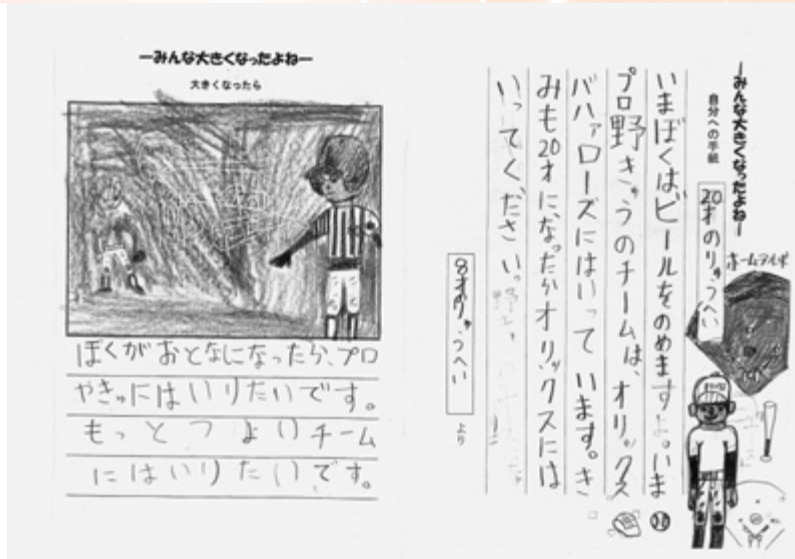 ーみんな大きくなったよねー
大きくなったら
ぼくがおとなになったら、プロ
やきゅにはいりたいです。
もっとつよいチーム
にはいりたいです。
ーみんな大きくなったよねー
自分への手紙
20才のりゅうへい
ホームラルボ
いまぼくはビールをのめますよ。いま
プロ野きゅうのチームは、オリックス
バハァローズにはいって います。き
みも20才に、なったらオリックスには
いってください。
8才のりゅうへい
より